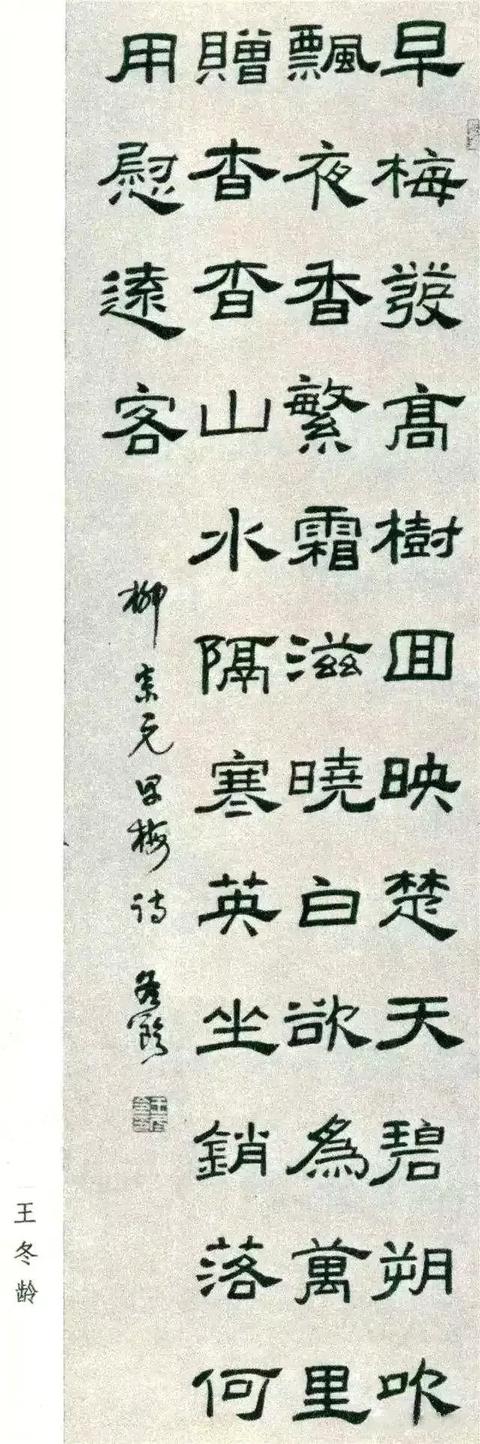 早梅發髙樹囬映楚天碧朔吹
飄夜香繁霜滋曉白欲為萬里
贈杳杳山水隔寒英坐銷落何
用慰遠客
柳宗元早梅诗 冬龄
王冬龄